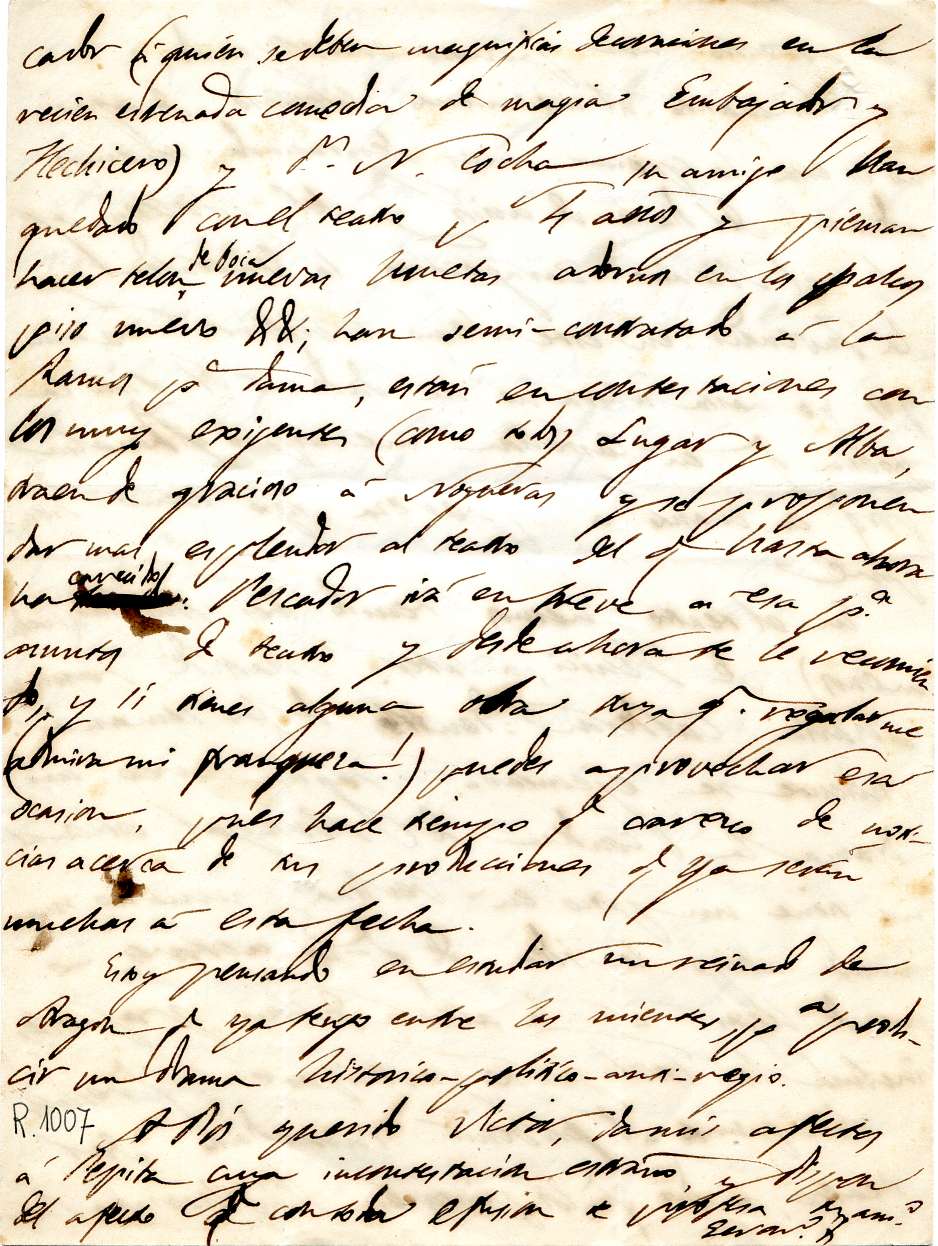 cador (á quien se deben magnificas decoraciones en la
recien estrenada comedia de magia Embajador y
Hechicero) y Dn. N. Cocha su amigo han
quedado con el teatro pr 4 años y piensan
hacer telon de boca nuevas lunetas adornos en los palcos
piso nuevo &&; han semi-contratado á la
Ramos pa dama, están en contestaciones con
los muy exijentes (como todos) Lugar y Alba,
traen de gracioso á Nogueras y se proponen
dar mas esplendor al teatro del q hasta ahora
ha carecido. Pescador irá en breve a esa pa
asuntos de teatro y desde ahora te le recomien
do, y si tienes alguna obra tuya q. regalarme
(admira mi franqueza!) puedes aprovechar esa
ocasion, pues hace tiempo q carezco de noti-
cias acerca de tus producciones q ya serán
muchas á esta fecha.
Estoy pensando en estudiar un reinado de
Aragon q ya tengo entre las mientes, pa produ-
cir un drama historico-politico-anti-regio.
R.1007 Adiós querido Victor, da mis afectos
á Pepita cuya incontestacion estraño y dispon
del afecto q con toda efusion te profesa tu amo.